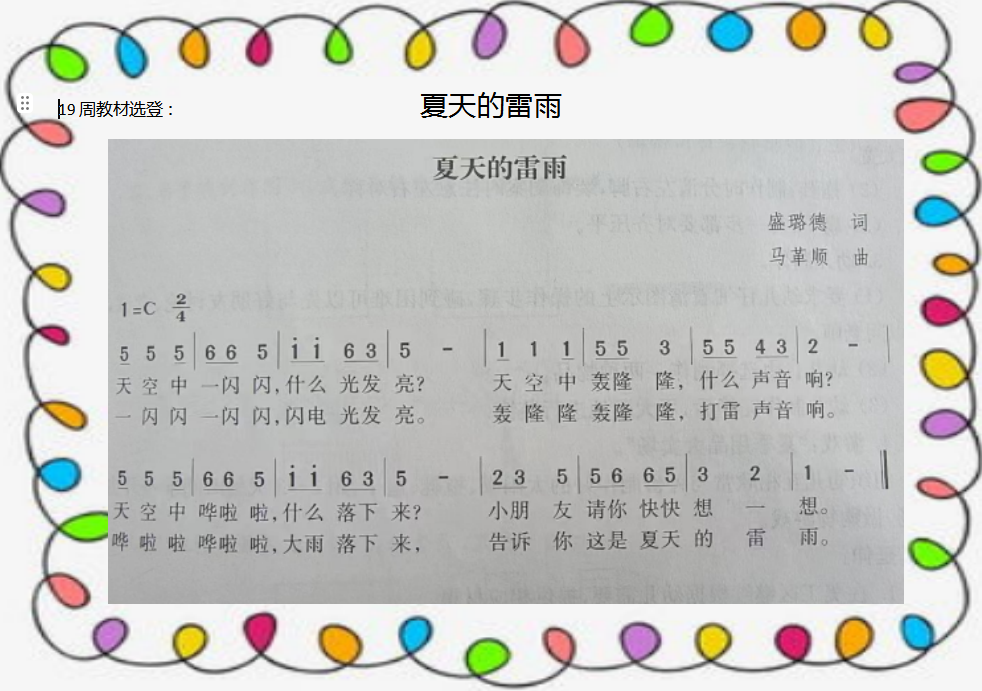 19周教材选登：
夏天的雷雨
夏天的雷雨
盛璐德 词
马革顺 曲
1=C 2/4
5 5 5 | 6 6 5 | i i 6 3 | 5 - | 1 1 1 | 5 5 3 | 5 5 4 3 | 2 - |
天 空 中 一闪 闪,什么 光发 亮? 天 空 中 轰隆 隆,什么 声音 响?
一 闪 闪 一闪 闪,闪电 光发 亮。 轰 隆 隆 轰隆 隆,打雷 声音 响。
5 5 5 | 6 6 5 | i i 6 3 | 5 - | 2 3 5 | 5 6 6 5 | 3 2 | 1 - ‖
天 空 中 哗啦 啦,什么 落下 来? 小朋 友 请你 快快 想 一 想。
哗 啦 啦 哗啦 啦,大雨 落下 来, 告诉 你 这是 夏天 的 雷 雨。